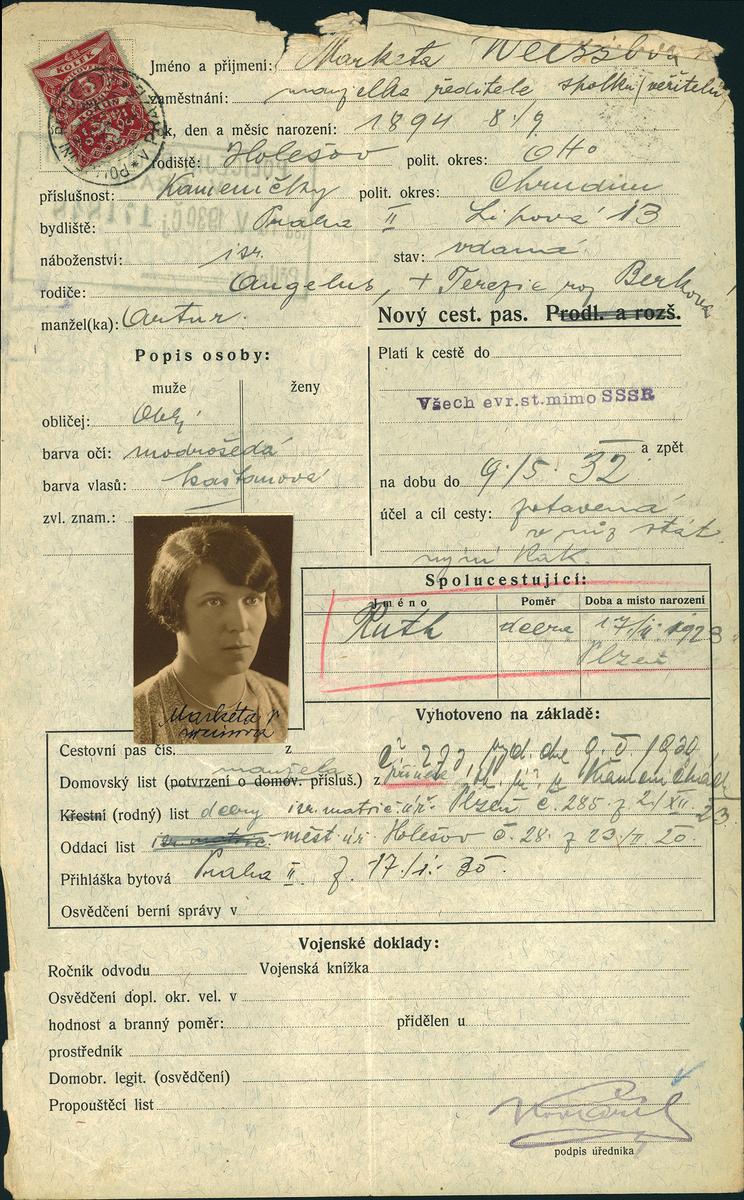 Jméno a přijmení: Marketa Weissova
zaměstnání: manželka ředitele spolku věřitelů
k, den a měsíc narození: 1894 8./9.
rodiště: Holešov polit. okres: dtto
příslušnost: Kameničky polit. okres: Chrudim
bydliště: Praha II Lipová 13
náboženství: isr. stav: vdaná
rodiče: Angelus, + Terezie roz Berkova
manžel(ka): Artur.
Nový cest. pas. Prodl. a rozš.
Popis osoby:
muže ženy
obličej: Obl.
barva očí: modrošedá
barva vlasů: kaštanová
zvl. znam.: —
Platí k cestě do
Všech evr.st.mimo SSSR
a zpět
na dobu do 9./5. 32
účel a cíl cesty: zotavená
v růz stát.
nyní Rak.
Spolucestující:
Jméno Poměr Doba a místo narození
Ruth dcera 17/ 1923
Plzeň
Marketa
Weissova
Vyhotoveno na základě:
Cestovní pas čís. z
manžela
Domovský list (potvrzení o domov. přísluš.) z
Křestní (rodný) list dcery isr. matric. úř. Plzeň č. 285 z 2/XII. 23.
Oddací list isr. matric. měst. úř. Holešov č. 28. z 23/II. 20.
Přihláška bytová Praha II z. 17./1. 30.
Osvědčení berní správy v
Vojenské doklady:
Ročník odvodu Vojenská knížka
Osvědčení dopl. okr. vel. v
hodnost a branný poměr: přidělen u
prostředník
Domobr. legit. (osvědčení)
Propouštěcí list
podpis úředníka